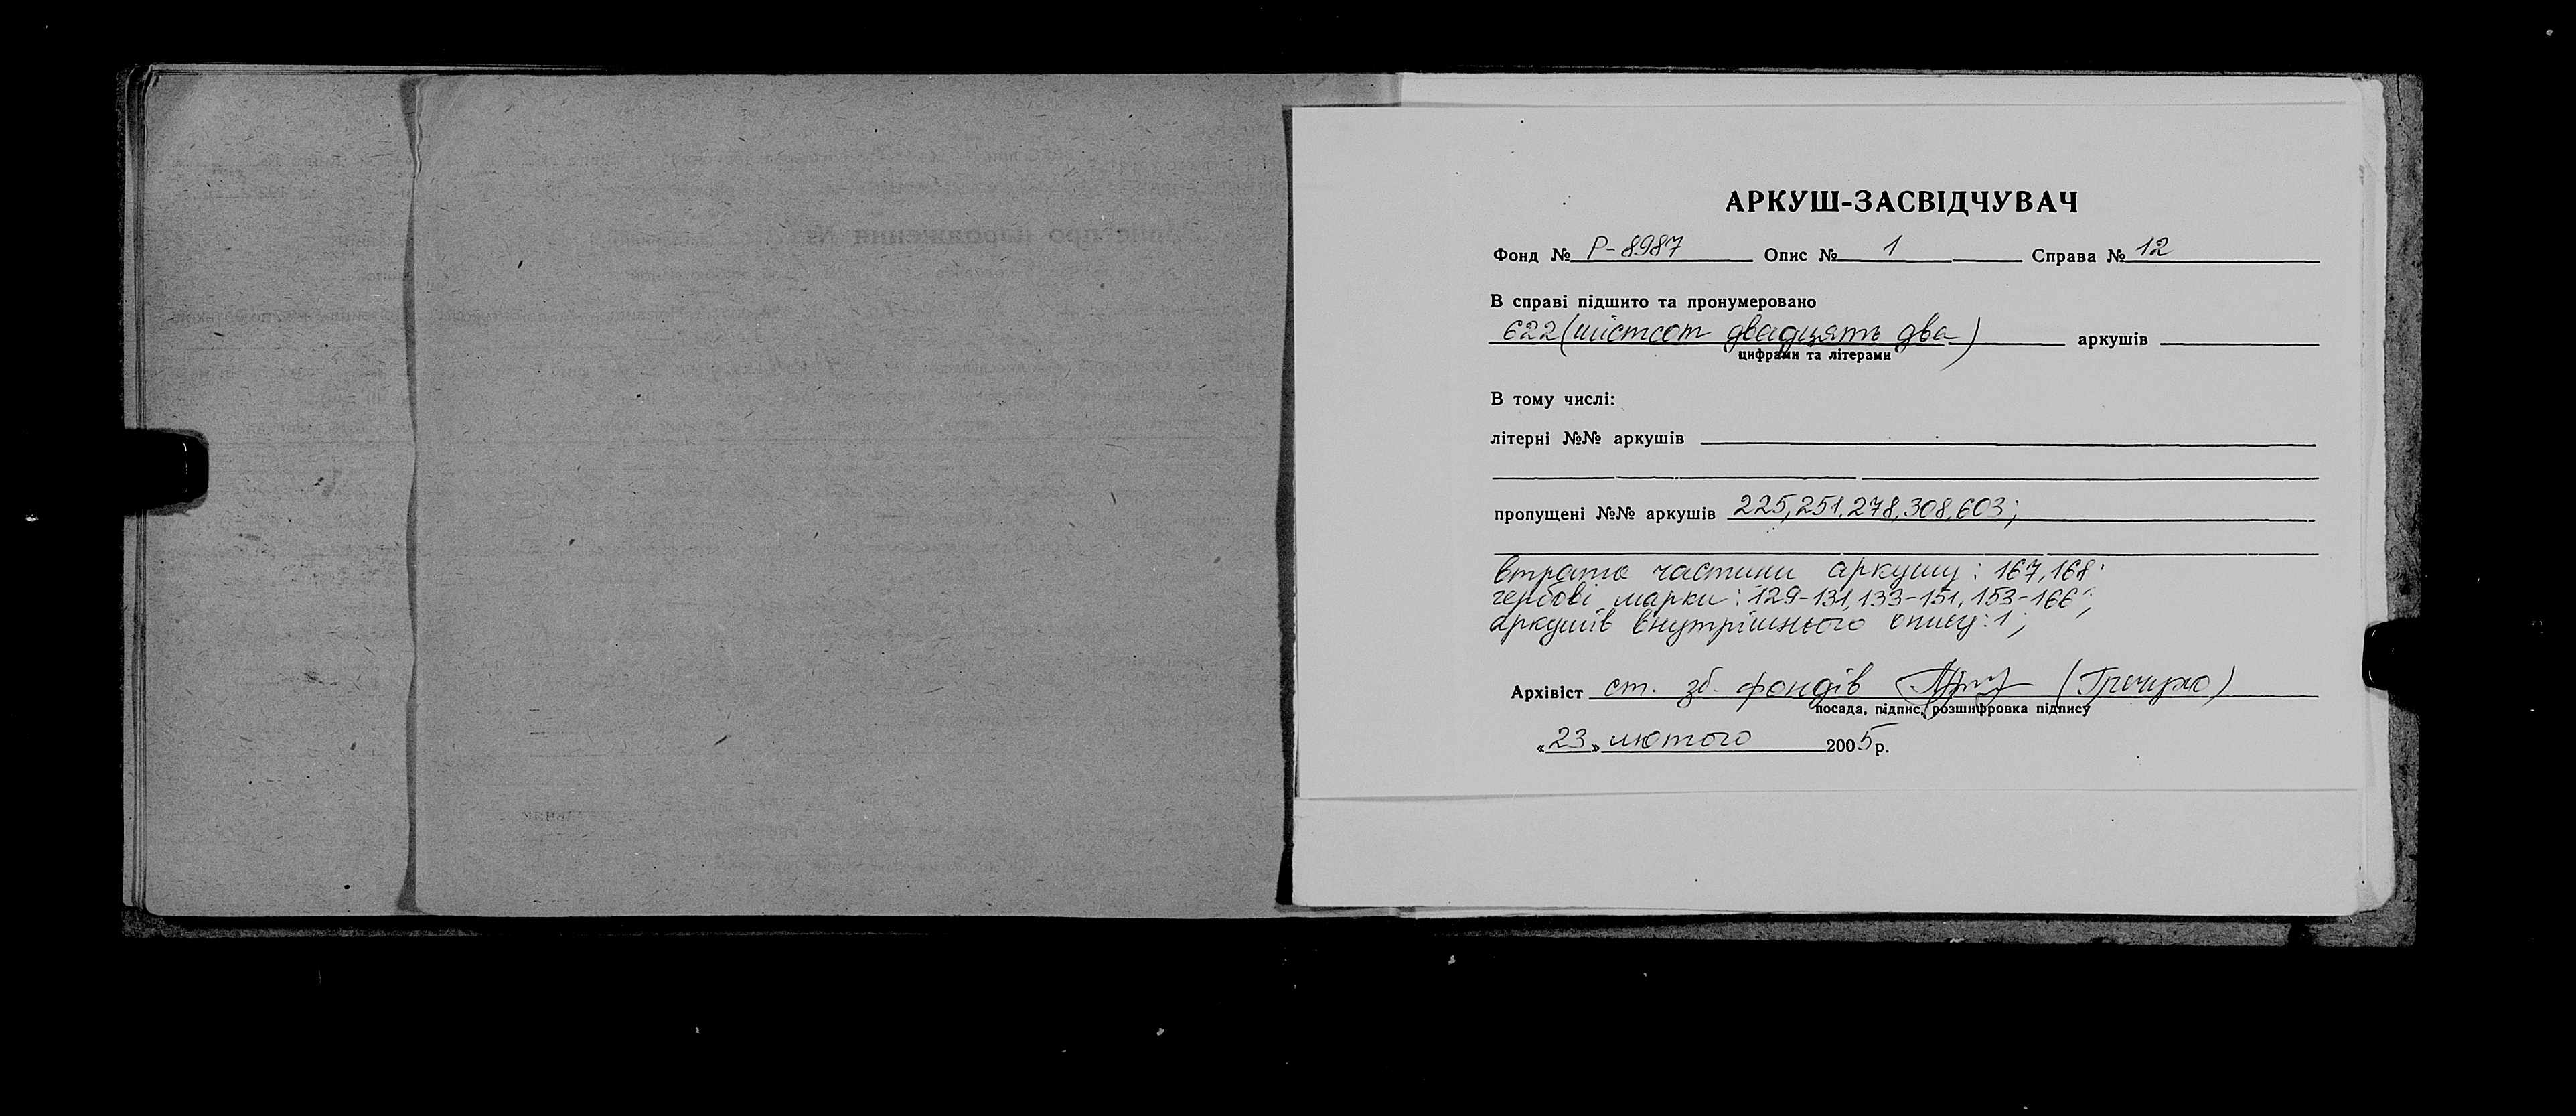 АРКУШ-ЗАСВІДЧУВАЧ
Фонд № Р-8987 Опис № 1 Справа № 12
В справі підшито та пронумеровано
622 (шістсот двадцять два) аркушів
цифрами та літерами
В тому числі:
літерні №№ аркушів
пропущені №№ аркушів 225, 251, 278, 308, 603;
втрата частини аркушу: 167, 168;
гербові марки: 129-131, 133-151, 153-166;
аркушів внутрішнього опису: 1;
Архівіст ст. зб. фондів
посада, підпис, розшифровка підпису
«23» лютого 2005 р.